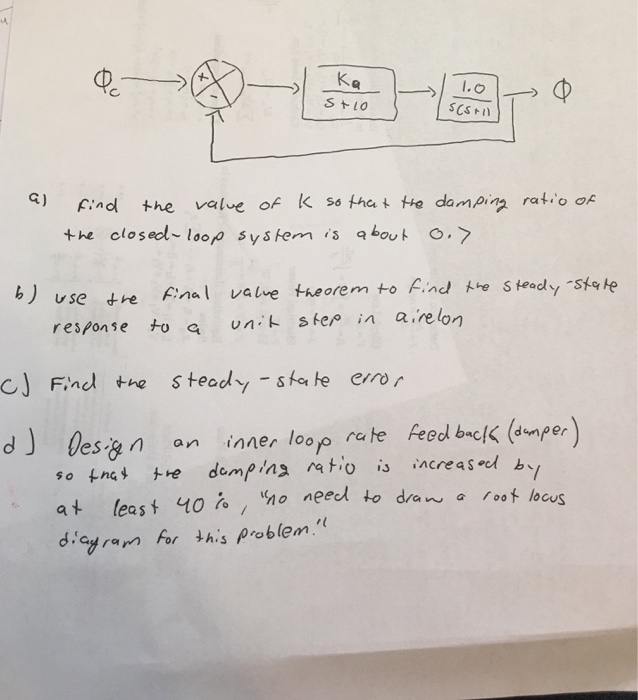 Φc + - Ka/(s+10) 1.0/(s(s+1)) Φ
a) find the value of K so that the damping ratio of
the closed-loop system is about 0.7
b) use the final value theorem to find the steady-state
response to a unit step in airelon
c) Find the steady-state error
d) Design an inner loop rate feedback (damper)
so that the damping ratio is increased by
at least 40%, "no need to draw a root locus
diagram for this problem."